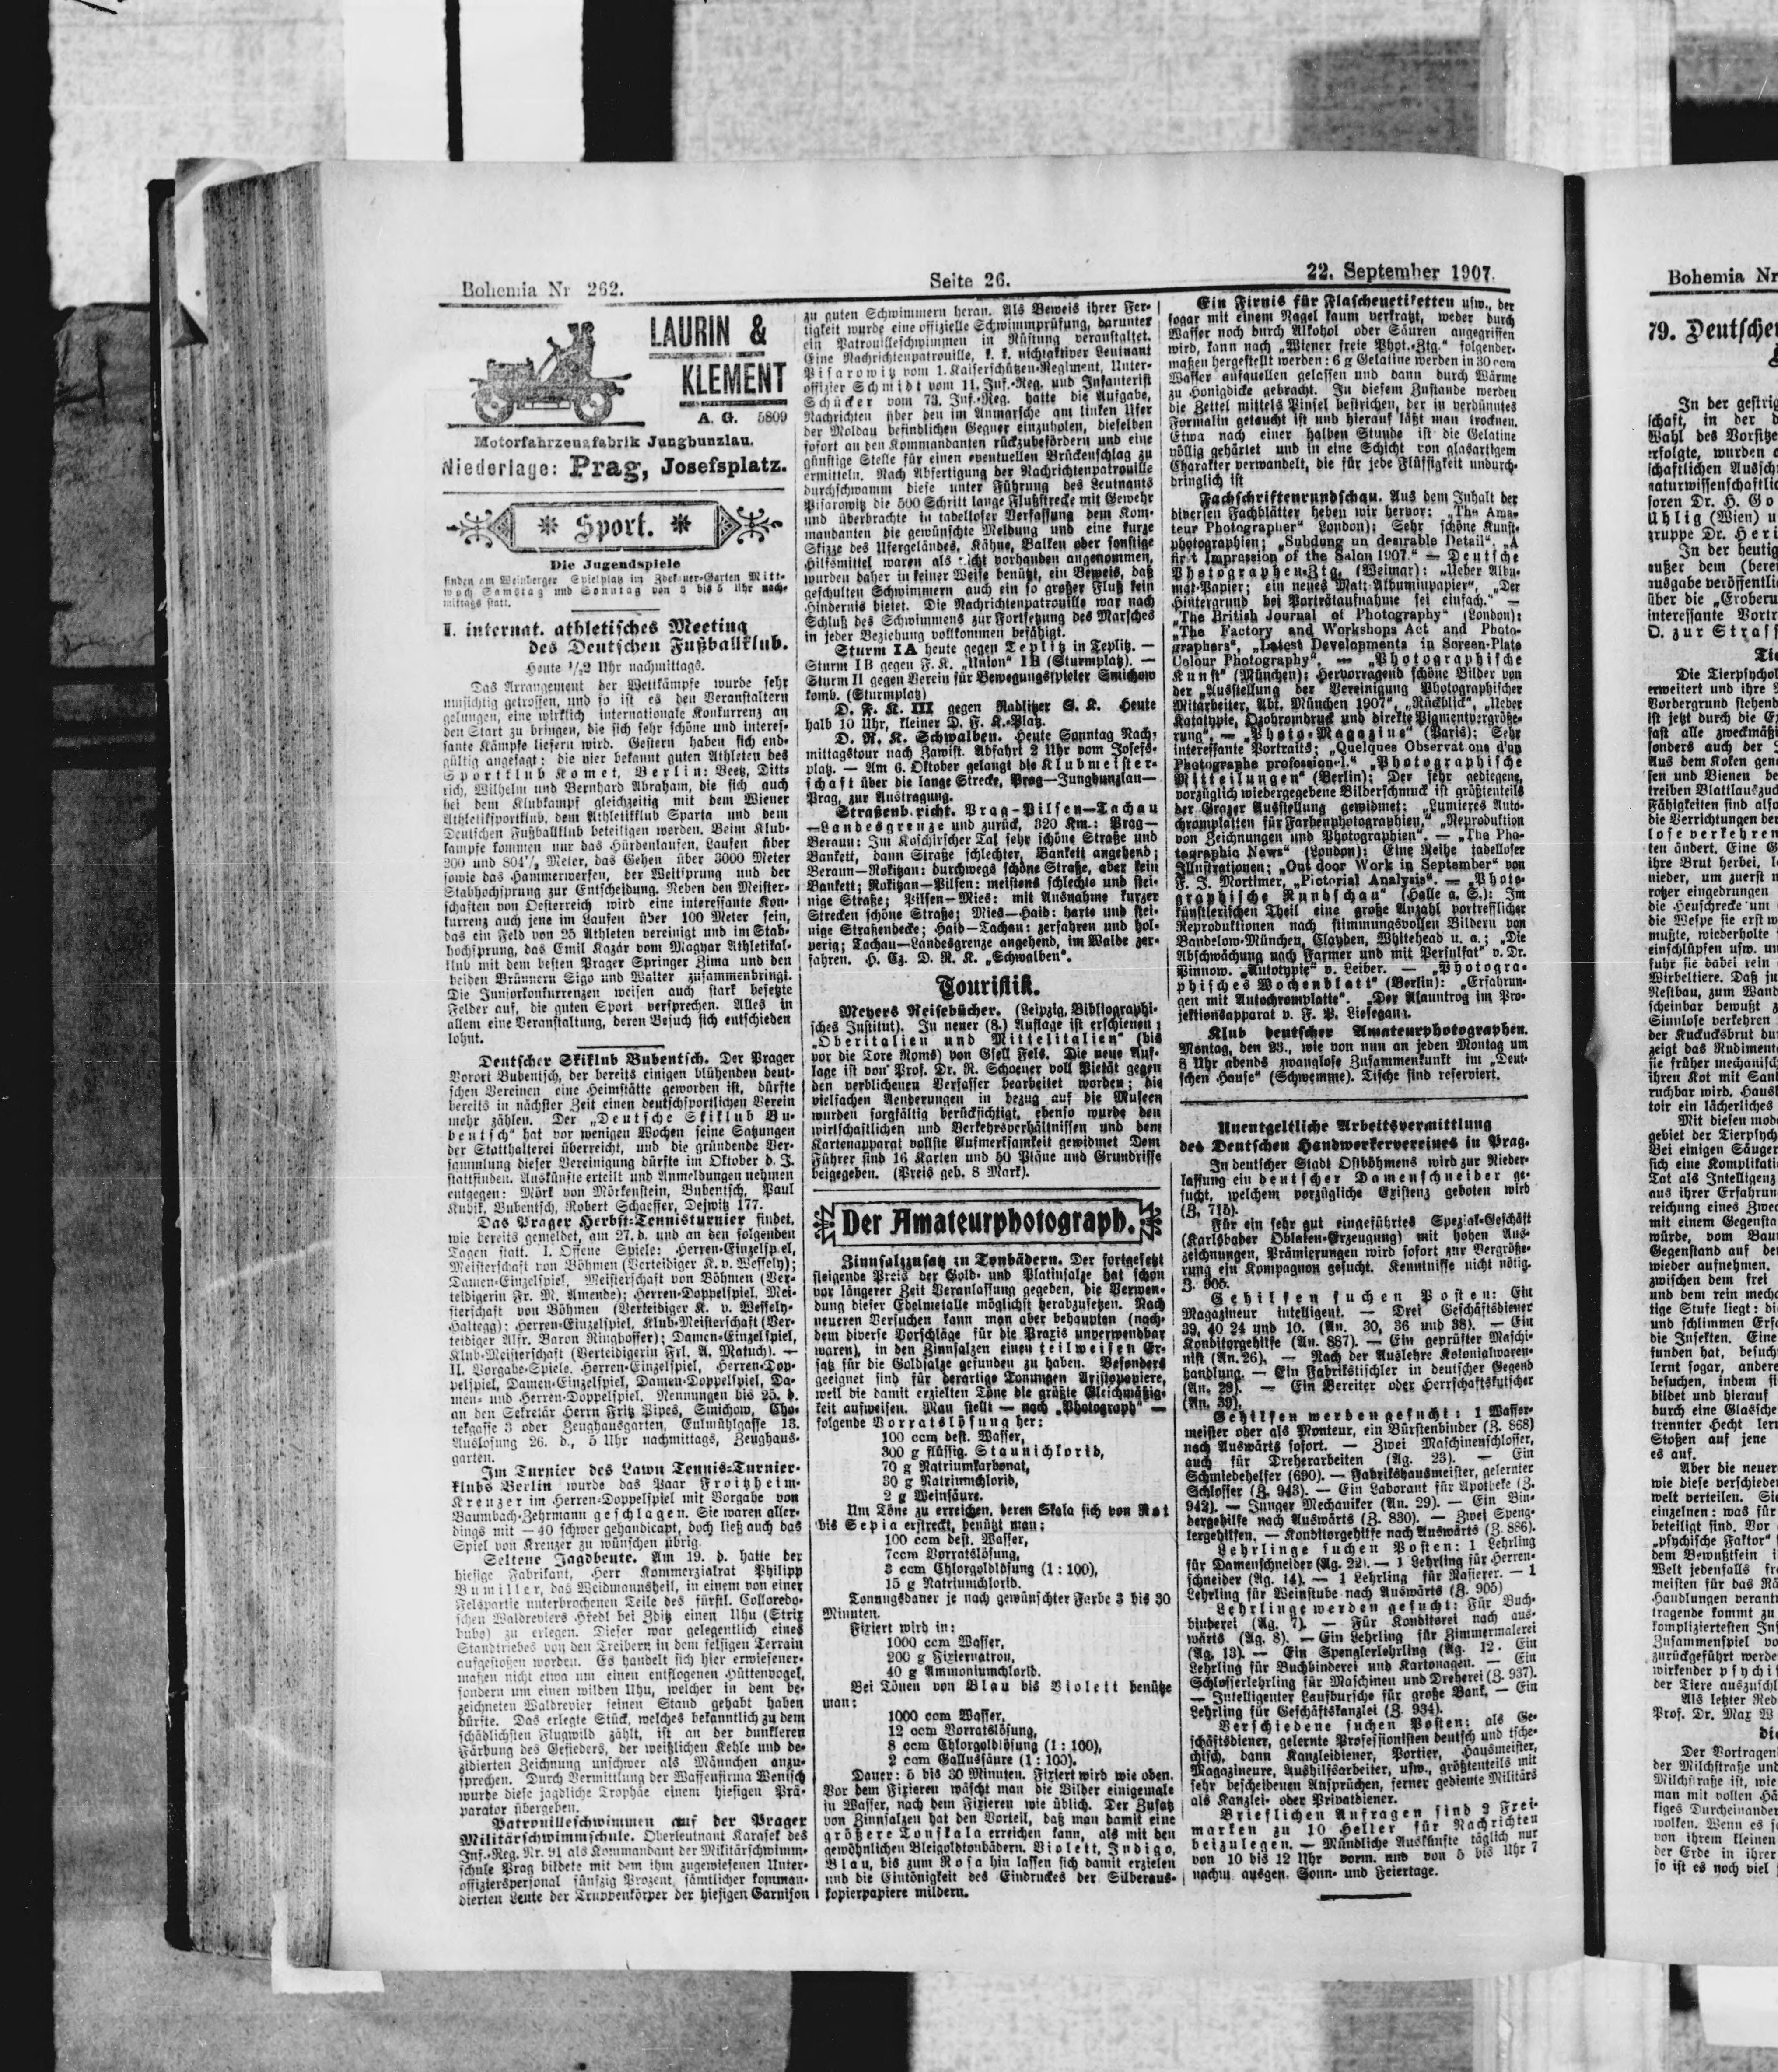 Bohemia Nr 262.
Seite 26.
22. September 1907.
LAURIN &
KLEMENT
A. G. 5809
Motorfahrzeugfabrik Jungbunzlau.
Niederlage: Prag, Josefsplatz.
Sport.
Die Jugendspiele
finden am Weinberger Spielplatz im Garten Mitt-
woch Samstag und Sonntag von 3 bis 5 Uhr nach-
mittags statt.
I. internat. athletisches Meeting
des Deutschen Fußballklub.
Heute ½2 Uhr nachmittags.
Das Arrangement der Wettkämpfe wurde sehr
umsichtig getroffen, und so ist es den Veranstaltern
gelungen, eine wirklich internationale Konkurrenz an
den Start zu bringen, die sich sehr schöne und interes-
sante Kämpfe liefern wird. Gestern haben sich end-
gültig angesagt: die vier bekannt guten Athleten des
Sportklub Komet, Berlin: Beetz, Ditt-
rich, Wilhelm und Bernhard Abraham, die sich auch
bei dem Klubkampf gleichzeitig mit dem Wiener
Athletiksportklub, dem Athletikklub Sparta und dem
Deutschen Fußballklub beteiligen werden. Beim Klub-
kampfe kommen nur das Hürdenlaufen, Laufen über
200 und 804½ Meter, das Gehen über 3000 Meter
sowie das Hammerwerfen, der Weitsprung und der
Stabhochsprung zur Entscheidung. Neben den Meister-
schaften von Oesterreich wird eine interessante Kon-
kurrenz auch jene im Laufen über 100 Meter sein,
das ein Feld von 25 Athleten vereinigt und im Stab-
hochsprung, das Emil Kazár vom Magyar Athletikal-
klub mit dem besten Prager Springer Zima und den
beiden Brünnern Sigo und Walter zusammenbringt.
Die Juniorkonkurrenzen weisen auch stark besetzte
Felder auf, die guten Sport versprechen. Alles in
allem eine Veranstaltung, deren Besuch sich entschieden
lohnt.
Deutscher Skiklub Bubentsch. Der Prager
Vorort Bubentsch, der bereits einigen blühenden deut-
schen Vereinen eine Heimstätte geworden ist, dürfte
bereits in nächster Zeit einen deutschsportlichen Verein
mehr zählen. Der „Deutsche Skiklub Bu-
bentsch“ hat vor wenigen Wochen seine Satzungen
der Statthalterei überreicht, und die gründende Ver-
sammlung dieser Vereinigung dürfte im Oktober d. J.
stattfinden. Auskünfte erteilt und Anmeldungen nehmen
entgegen: Mörk von Mörkenstein, Bubentsch, Paul
Kubik, Bubentsch, Robert Schaeffer, Dejwitz 177.
Das Prager Herbst-Tennisturnier findet,
wie bereits gemeldet, am 27. d. und an den folgenden
Tagen statt. I. Offene Spiele: Herren-Einzelspiel,
Meisterschaft von Böhmen (Verteidiger K. v. Wessely);
Damen-Einzelspiel, Meisterschaft von Böhmen (Ver-
teidigerin Fr. M. Amende); Herren-Doppelspiel, Mei-
sterschaft von Böhmen (Verteidiger K. v. Wessely-
Haltegg); Herren-Einzelspiel, Klub-Meisterschaft (Ver-
teidiger Alfr. Baron Ringhoffer); Damen-Einzelspiel,
Klub-Meisterschaft (Verteidigerin Frl. A. Matuch). —
II. Vorgabe-Spiele. Herren-Einzelspiel, Herren-Dop-
pelspiel, Damen-Einzelspiel, Damen-Doppelspiel, Da-
men- und Herren-Doppelspiel. Nennungen bis 25. d.
an den Sekretär Herrn Fritz Pipes, Smichow, Cho-
tekgasse 3 oder Zeughausgarten, Eulmühlgasse 13.
Auslosung 26. d., 5 Uhr nachmittags, Zeughaus-
garten.
Im Turnier des Lawn Tennis-Turnier-
klubs Berlin wurde das Paar Froitzheim-
Kreuzer im Herren-Doppelspiel mit Vorgabe von
Baumbach-Zehrmann geschlagen. Sie waren aller-
dings mit —40 schwer gehandicapt, doch ließ auch das
Spiel von Kreuzer zu wünschen übrig.
Seltene Jagdbeute. Am 19. d. hatte der
hiesige Fabrikant, Herr Kommerzialrat Philipp
Bumiller, das Weidmannsheil, in einem von einer
Felspartie unterbrochenen Teile des fürstl. Colloredo-
schen Waldreviers Hředl bei Zditz einen Uhu (Strix
bubo) zu erlegen. Dieser war gelegentlich eines
Standtriebes von den Treibern in dem felsigen Terrain
aufgestoßen worden. Es handelt sich hier erwiesener-
maßen nicht etwa um einen entflogenen Hüttenvogel,
sondern um einen wilden Uhu, welcher in dem be-
zeichneten Waldrevier seinen Stand gehabt haben
dürfte. Das erlegte Stück, welches bekanntlich zu dem
schädlichsten Flugwild zählt, ist an der dunkleren
Färbung des Gefieders, der weißlichen Kehle und de-
zidierten Zeichnung unschwer als Männchen anzu-
sprechen. Durch Vermittlung der Waffenfirma Wentsch
wurde diese jagdliche Trophäe einem hiesigen Prä-
parator übergeben.
Patrouilleschwimmen auf der Prager
Militärschwimmschule. Oberleutnant Karasek des
Inf.-Reg. Nr. 91 als Kommandant der Militärschwimm-
schule Prag bildete mit dem ihm zugewiesenen Unter-
offizierspersonal fünfzig Prozent sämtlicher komman-
dierten Leute der Truppenkörper der hiesigen Garnison
zu guten Schwimmern heran. Als Beweis ihrer Fer-
tigkeit wurde eine offizielle Schwimmprüfung, darunter
ein Patrouilleschwimmen in Rüstung veranstaltet.
Eine Nachrichtenpatrouille, k. k. nichtaktiver Leutnant
Pisarowitz vom 1. Kaiserschützen-Regiment, Unter-
offizier Schmidt vom 11. Inf.-Reg. und Infanterist
Schücker vom 73. Inf.-Reg. hatte die Aufgabe,
Nachrichten über den im Anmarsche am linken Ufer
der Moldau befindlichen Gegner einzuholen, dieselben
sofort an den Kommandanten rückzubefördern und eine
günstige Stelle für einen eventuellen Brückenschlag zu
ermitteln. Nach Abfertigung der Nachrichtenpatrouille
durchschwamm diese unter Führung des Leutnants
Pisarowitz die 500 Schritt lange Flußstrecke mit Gewehr
und überbrachte in tadelloser Verfassung dem Kom-
mandanten die gewünschte Meldung und eine kurze
Skizze des Ufergeländes. Kähne, Balken oder sonstige
Hilfsmittel waren als nicht vorhanden angenommen,
wurden daher in keiner Weise benützt, ein Beweis, daß
geschulten Schwimmern auch ein so großer Fluß kein
Hindernis bietet. Die Nachrichtenpatrouille war nach
Schluß des Schwimmens zur Fortsetzung des Marsches
in jeder Beziehung vollkommen befähigt.
Sturm IA heute gegen Teplitz in Teplitz. —
Sturm IB gegen F. K. „Union“ IB (Sturmplatz). —
Sturm II gegen Verein für Bewegungsspieler Smichow
komb. (Sturmplatz)
D. F. K. III gegen Radlitzer S. K. Heute
halb 10 Uhr, kleiner D. F. K.-Platz.
D. R. K. Schwalben. Heute Sonntag Nach-
mittagstour nach Zawist. Abfahrt 2 Uhr vom Josefs-
platz. — Am 6. Oktober gelangt die Klubmeister-
schaft über die lange Strecke, Prag—Jungbunzlau—
Prag, zur Austragung.
Straßenb richt. Prag-Pilsen—Tachau
—Landesgrenze und zurück, 320 Km.: Prag—
Beraun: Im Koschirscher Tal sehr schöne Straße und
Bankett, dann Straße schlechter, Bankett angehend;
Beraun—Rokitzan: durchwegs schöne Straße, aber kein
Bankett; Rokitzan—Pilsen: meistens schlechte und stei-
nige Straße; Pilsen—Mies: mit Ausnahme kurzer
Strecken schöne Straße; Mies—Haid: harte und stei-
nige Straßendecke; Haid—Tachau: zerfahren und hol-
perig; Tachau—Landesgrenze angehend, im Walde zer-
fahren. H. Cz. D. R. K. „Schwalben“.
Touristik.
Meyers Reisebücher. (Leipzig, Bibliographi-
sches Institut). In neuer (8.) Auflage ist erschienen:
„Oberitalien und Mittelitalien“ (bis
vor die Tore Roms) von Gsell Fels. Die neue Auf-
lage ist von Prof. Dr. R. Schoener voll Pietät gegen
den verblichenen Verfasser bearbeitet worden; die
vielfachen Aenderungen in bezug auf die Museen
wurden sorgfältig berücksichtigt, ebenso wurde den
wirtschaftlichen und Verkehrsverhältnissen und dem
Kartenapparat vollste Aufmerksamkeit gewidmet Dem
Führer sind 16 Karten und 50 Pläne und Grundrisse
beigegeben. (Preis geb. 8 Mark).
Der Amateurphotograph.
Zinnsalzzusatz zu Tonbädern. Der fortgesetzt
steigende Preis der Gold- und Platinsalze hat schon
vor längerer Zeit Veranlassung gegeben, die Verwen-
dung dieser Edelmetalle möglichst herabzusetzen. Nach
neueren Versuchen kann man aber behaupten (nach-
dem diverse Vorschläge für die Praxis unverwendbar
waren), in den Zinnsalzen einen teilweisen Er-
satz für die Goldsalze gefunden zu haben. Besonders
geeignet sind für derartige Tonungen Aristopapiere,
weil die damit erzielten Töne die größte Gleichmäßig-
keit aufweisen. Man stellt — nach „Photograph“ —
folgende Vorratslösung her:
100 ccm dest. Wasser,
300 g flüssig. Stannichlorid,
70 g Natriumkarbonat,
30 g Natriumchlorid,
2 g Weinsäure.
Um Töne zu erreichen, deren Skala sich von Rot
bis Sepia erstreckt, benützt man:
100 ccm dest. Wasser,
7ccm Vorratslösung,
3 ccm Chlorgoldlösung (1 : 100),
15 g Natriumchlorid.
Tonungsdauer je nach gewünschter Farbe 3 bis 30
Minuten.
Fixiert wird in:
1000 ccm Wasser,
200 g Fixiernatron,
40 g Ammoniumchlorid.
Bei Tönen von Blau bis Violett benütze
man:
1000 ccm Wasser,
12 ccm Vorratslösung,
8 ccm Chlorgoldlösung (1 : 100),
2 ccm Gallussäure (1 : 100).
Dauer: 5 bis 30 Minuten. Fixiert wird wie oben.
Vor dem Fixieren wäscht man die Bilder einigemale
in Wasser, nach dem Fixieren wie üblich. Der Zusatz
von Zinnsalzen hat den Vorteil, daß man damit eine
größere Tonskala erreichen kann, als mit den
gewöhnlichen Bleigoldtonbädern. Violett, Indigo,
Blau, bis zum Rosa hin lassen sich damit erzielen
und die Eintönigkeit des Eindruckes der Silberaus-
kopierpapiere mildern.
Ein Firnis für Flaschenetiketten usw., der
sogar mit einem Nagel kaum verkratzt, weder durch
Wasser noch durch Alkohol oder Säuren angegriffen
wird, kann nach „Wiener freie Phot.-Ztg.“ folgender-
maßen hergestellt werden: 6 g Gelatine werden in 30 ccm
Wasser aufquellen gelassen und dann durch Wärme
zu Honigdicke gebracht. In diesem Zustande werden
die Zettel mittels Pinsel bestrichen, der in verdünntes
Formalin getaucht ist und hierauf läßt man trocknen.
Etwa nach einer halben Stunde ist die Gelatine
völlig gehärtet und in eine Schicht von glasartigem
Charakter verwandelt, die für jede Flüssigkeit undurch-
dringlich ist
Fachschriftenrundschau. Aus dem Inhalt der
diversen Fachblätter heben wir hervor: „The Ama-
teur Photographer“ London): Sehr schöne Kunst-
photographien; „Subdung un desirable Detail“. „A
first Impression of the Salon 1907.“ — Deutsche
Photographen-Ztg. (Weimar): „Ueber Albu-
mat-Papier; ein neues Matt-Albuminpapier“, „Der
Hintergrund bei Porträtaufnahme sei einfach.“ —
„The British Journal of Photography“ (London):
„The Factory and Workshops Act and Photo-
graphers“, „Latest Developments in Screen-Plate
Colour Photography“, — „Photographische
Kunst“ (München): Hervorragend schöne Bilder von
der „Ausstellung der Vereinigung Photographischer
Mitarbeiter, Abt. München 1907“, „Rückblick“, „Ueber
Katatypie, Ozobromdruck und direkte Pigmentvergröße-
rung“. — „Photo-Magazine“ (Paris): Sehr
interessante Portraits; „Quelques Observations d'un
Photographe profession-l.“ „Photographische
Mitteilungen“ (Berlin): Der sehr gediegene,
vorzüglich wiedergegebene Bilderschmuck ist größtenteils
der Grazer Ausstellung gewidmet: „Lumieres Auto-
chromplatten für Farbenphotographien,“ „Reproduktion
von Zeichnungen und Photographien“. — „The Pho-
tographic News“ (London): Eine Reihe tadelloser
Illustrationen; „Out door Work in September“ von
F. J. Mortimer, „Pictorial Analysis“. — „Photo-
graphische Rundschau“ (Halle a. S.): Im
künstlerischen Theil eine große Anzahl vortrefflicher
Reproduktionen nach stimmungsvollen Bildern von
Bandelow-München, Clayden, Whitehead u. a.; „Die
Abschwächung nach Farmer und mit Persulfat“ v. Dr.
Pinnow. „Autotypie“ v. Leiber. — „Photogra-
phisches Wochenblatt“ (Berlin): „Erfahrun-
gen mit Autochromplatte“. „Der Alauntrog im Pro-
jektionsapparat v. F. P. Liesegan.
Klub deutscher Amateurphotographen.
Montag, den 23., wie von nun an jeden Montag um
8 Uhr abends zwanglose Zusammenkunft im „Deut-
schen Hause“ (Schwemme). Tische sind reserviert.
Unentgeltliche Arbeitsvermittlung
des Deutschen Handwerkervereines in Prag.
In deutscher Stadt Ostböhmens wird zur Nieder-
lassung ein deutscher Damenschneider ge-
sucht, welchem vorzügliche Existenz geboten wird
(Z. 715).
Für ein sehr gut eingeführtes Spezial-Geschäft
(Karlsbader Oblaten-Erzeugung) mit hohen Aus-
zeichnungen, Prämierungen wird sofort zur Vergröße-
rung ein Kompagnon gesucht. Kenntnisse nicht nötig.
Z. 905.
Gehilfen suchen Posten: Ein
Magazineur intelligent. — Drei Geschäftsdiener
39, 40 24 und 10. (An. 30, 36 und 38). — Ein
Konditorgehilfe (An. 887). — Ein geprüfter Maschi-
nist (An. 26). — Nach der Auslehre Kolonialwaren-
handlung. — Ein Fabrikstischler in deutscher Gegend
(An. 29). — Ein Bereiter oder Herrschaftskutscher
(An. 39).
Gehilfen werden gesucht: 1 Wasser-
meister oder als Monteur, ein Bürstenbinder (Z. 868)
nach Auswärts sofort. — Zwei Maschinenschlosser,
auch für Dreherarbeiten (Ag. 23). — Ein
Schmiedehelfer (690). — Fabrikshausmeister, gelernter
Schlosser (Z. 943). — Ein Laborant für Apotheke (Z.
942). — Junger Mechaniker (An. 29). — Ein Bin-
dergehilfe nach Auswärts (Z. 830). — Zwei Speng-
lergehilfen. — Konditorgehilfe nach Auswärts (Z. 886).
Lehrlinge suchen Posten: 1 Lehrling
für Damenschneider (Ag. 22). — 1 Lehrling für Herren-
schneider (Ag. 14). — 1 Lehrling für Rasierer. — 1
Lehrling für Weinstube nach Auswärts (Z. 905)
Lehrlinge werden gesucht: Für Buch-
binderei (Ag. 7). — Für Konditorei nach aus-
wärts (Ag. 8). — Ein Lehrling für Zimmermalerei
(Ag. 13). — Ein Spenglerlehrling (Ag. 12. Ein
Lehrling für Buchbinderei und Kartonagen. — Ein
Schlosserlehrling für Maschinen und Dreherei (Z. 937).
— Intelligenter Laufbursche für große Bank. — Ein
Lehrling für Geschäftskanzlei (Z. 934).
Verschiedene suchen Posten: als Ge-
schäftsdiener, gelernte Professionisten deutsch und tsche-
chisch, dann Kanzleidiener, Portier, Hausmeister,
Magazineure, Aushilfsarbeiter, usw., größtenteils mit
sehr bescheidenen Ansprüchen, ferner gediente Militärs
als Kanzlei- oder Privatdiener.
Brieflichen Anfragen sind 2 Frei-
marken zu 10 Heller für Nachrichten
beizulegen. — Mündliche Auskünfte täglich nur
von 10 bis 12 Uhr vorm. und von 5 bis Uhr 7
nachm ausgen. Sonn- und Feiertage.
Bohemia Nr
79. Deutscher
In der gestrig
schaft, in der d
Wahl des Vorsitze
erfolgte, wurden a
schaftlichen Aussch
naturwissenschaftlic
soren Dr. H. Go
Uhlig (Wien) u
gruppe Dr. Heri
In der heutig
außer dem (berei
ausgabe veröffentlic
über die „Eroberu
interessante Vortr
D. zur Strass
Tie
Die Tierpsychol
erweitert und ihre
Vordergrund stehend
ist jetzt durch die E
fast alle zweckmäßi
sonders auch der
Aus dem Koken gen
sen und Bienen be
treiben Blattlauszuch
Fähigkeiten sind also
die Verrichtungen der
lose verkehren
ten ändert. Eine G
ihre Brut herbei, l
nieder, um zuerst n
rotzer eingedrungen
die Heuschrecke um
die Wespe sie erst w
mußte, wiederholte
einschlüpfen usw. un
fuhr sie dabei rein
Wirbeltiere. Daß ju
Nestbau, zum Wand
scheinbar bewußt z
Sinnlose verkehren
der Kuckucksbrut dur
zeigt das Rudiment
sie früher mechanisch
ihren Kot mit Sand
ruchbar wird. Haus
toir ein lächerliches
Mit diesen mod
gebiet der Tierpsych
Bei einigen Säuger
sich eine Komplikati
Tat als Intelligenz
aus ihrer Erfahrun
reichung eines Zwec
mit einem Gegensta
würde, vom Bau
Gegenstand auf de
wieder aufnehmen.
zwischen dem frei
und dem rein mecha
tige Stufe liegt: di
und schlimmen Erfa
die Insekten. Eine
funden hat, besuch
lernt sogar, andere
besuchen, indem si
bildet und hierauf
durch eine Glassche
trennter Hecht ler
Stoßen auf jene
es auf.
Aber die neuer
wie diese verschiede
welt verteilen. Sie
einzelnen: was für
beteiligt sind. Vor
„psychische Faktor“
dem Bewußtsein i
Welt jedenfalls fr
meisten für das Rä
Handlungen verant
tragende kommt zu
kompliziertesten Ins
Zusammenspiel vo
zurückgeführt werde
wirkender psychi
der Tiere auszuschl
Als letzter Red
Prof. Dr. Max W
die
Der Vortragen
der Milchstraße und
Milchstraße ist, wie
man mit vollen Hä
kiges Durcheinander
wolken. Wenn es s
von ihrem kleinen
der Erde in ihrer
so ist es noch viel